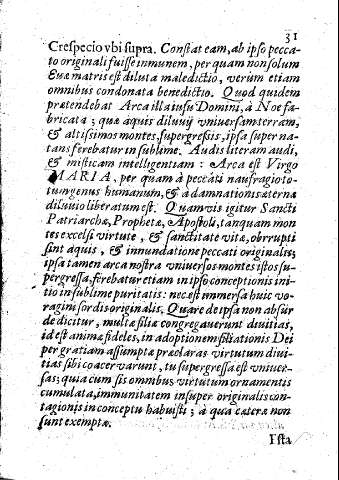 31
Crespecio vbi supra. Constat eam, ab ipso pecca-
to originali fuisse inmunem, per quam non solum
Euæ matris est diluta maledictio, verùm etiam
omnibus condonata benedictio. Quod quidem
prætendebat Arca illa iusu Domini, à Noe fa-
bricata; quæ aquis diluuij vniuersam terram,
& altissimos montes, supergressis, ipsa super na-
tans ferebatur in sublime. Audis literam audi,
& misticam intelligentiam: Arca est Virgo
MARIA, per quam à peccati naufragio to-
tum genus humanum, & à damnationis æternæ
diluuio liberatum est. Quamvis igitur Sancti
Patriarchæ, Prophetæ, Apostoli, tanquam mon
tes excelsi virtute, & sanctitate vitæ, obrrupti
sint aquis, & innundatione peccati originalis;
ipsa tamen arca nostra vniuersos montes istos su-
pergressa, ferebatur etiam in ipso conceptionis ini-
tio in sublime puritatis: nec est immersa huic vo-
ragini sordis originalis. Quare de ipsa non absur
de dicitur, multæ filiæ congregauerunt diuitias,
id est animæ fideles, in adoptionem filiationis Dei
per gratiam assumptæ præclaras virtutum diui-
tias sibi coacervarunt, tu supergressa est vniuer-
sas; quia cum sis omnibus virtutum ornamentis
cumulata, immunitatem insuper originalis con-
tagionis in conceptu habuisti; à qua cæteræ non
sunt exemptæ.
Ista